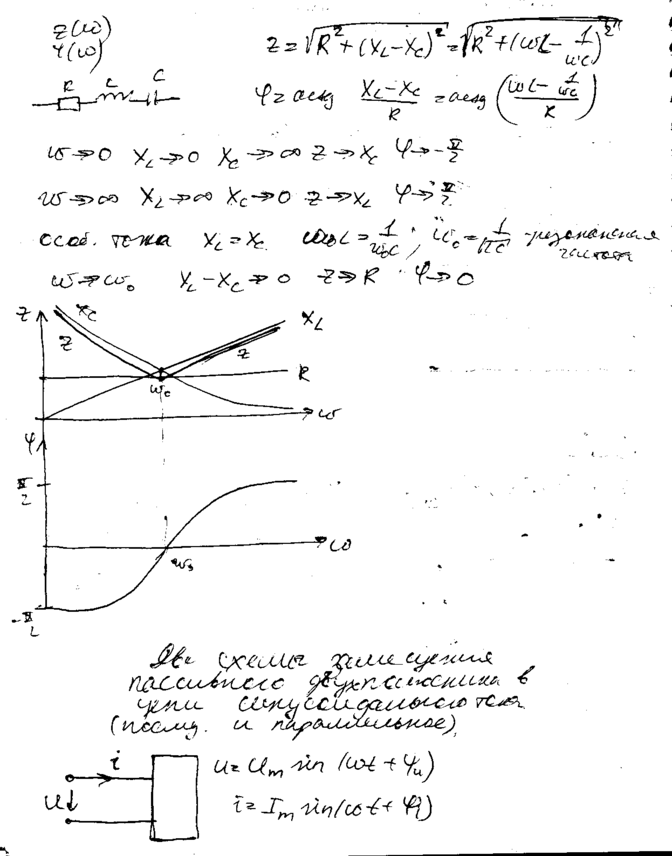 z(ω)
φ(ω)
z = √R² + (X_L - X_C)² = √R² + (ωL - 1/ωC)²
R L C
φ = arctg (X_L - X_C)/R = arctg ((ωL - 1/ωC)/R)
ω → 0 X_L → 0 X_C → ∞ Z → X_C φ → -π/2
ω → ∞ X_L → ∞ X_C → 0 Z → X_L φ → π/2
особ. точка X_L = X_C ω₀L = 1/ω₀C ; ω₀ = 1/√LC - резонансная частота
ω → ω₀ X_L - X_C → 0 Z → R φ → 0
Z X_C X_L
Z Z
R
ω₀ ω
φ
π/2
ω₀ ω
-π/2
Две схемы замещения
пассивного двухполюсника в
цепи синусоидального тока
(послед. и параллельное)
i u = U_m sin (ωt + φ_u)
u i = I_m sin (ωt + φ_i)